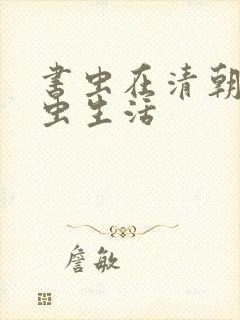 书虫在清朝
虫生活
詹敏